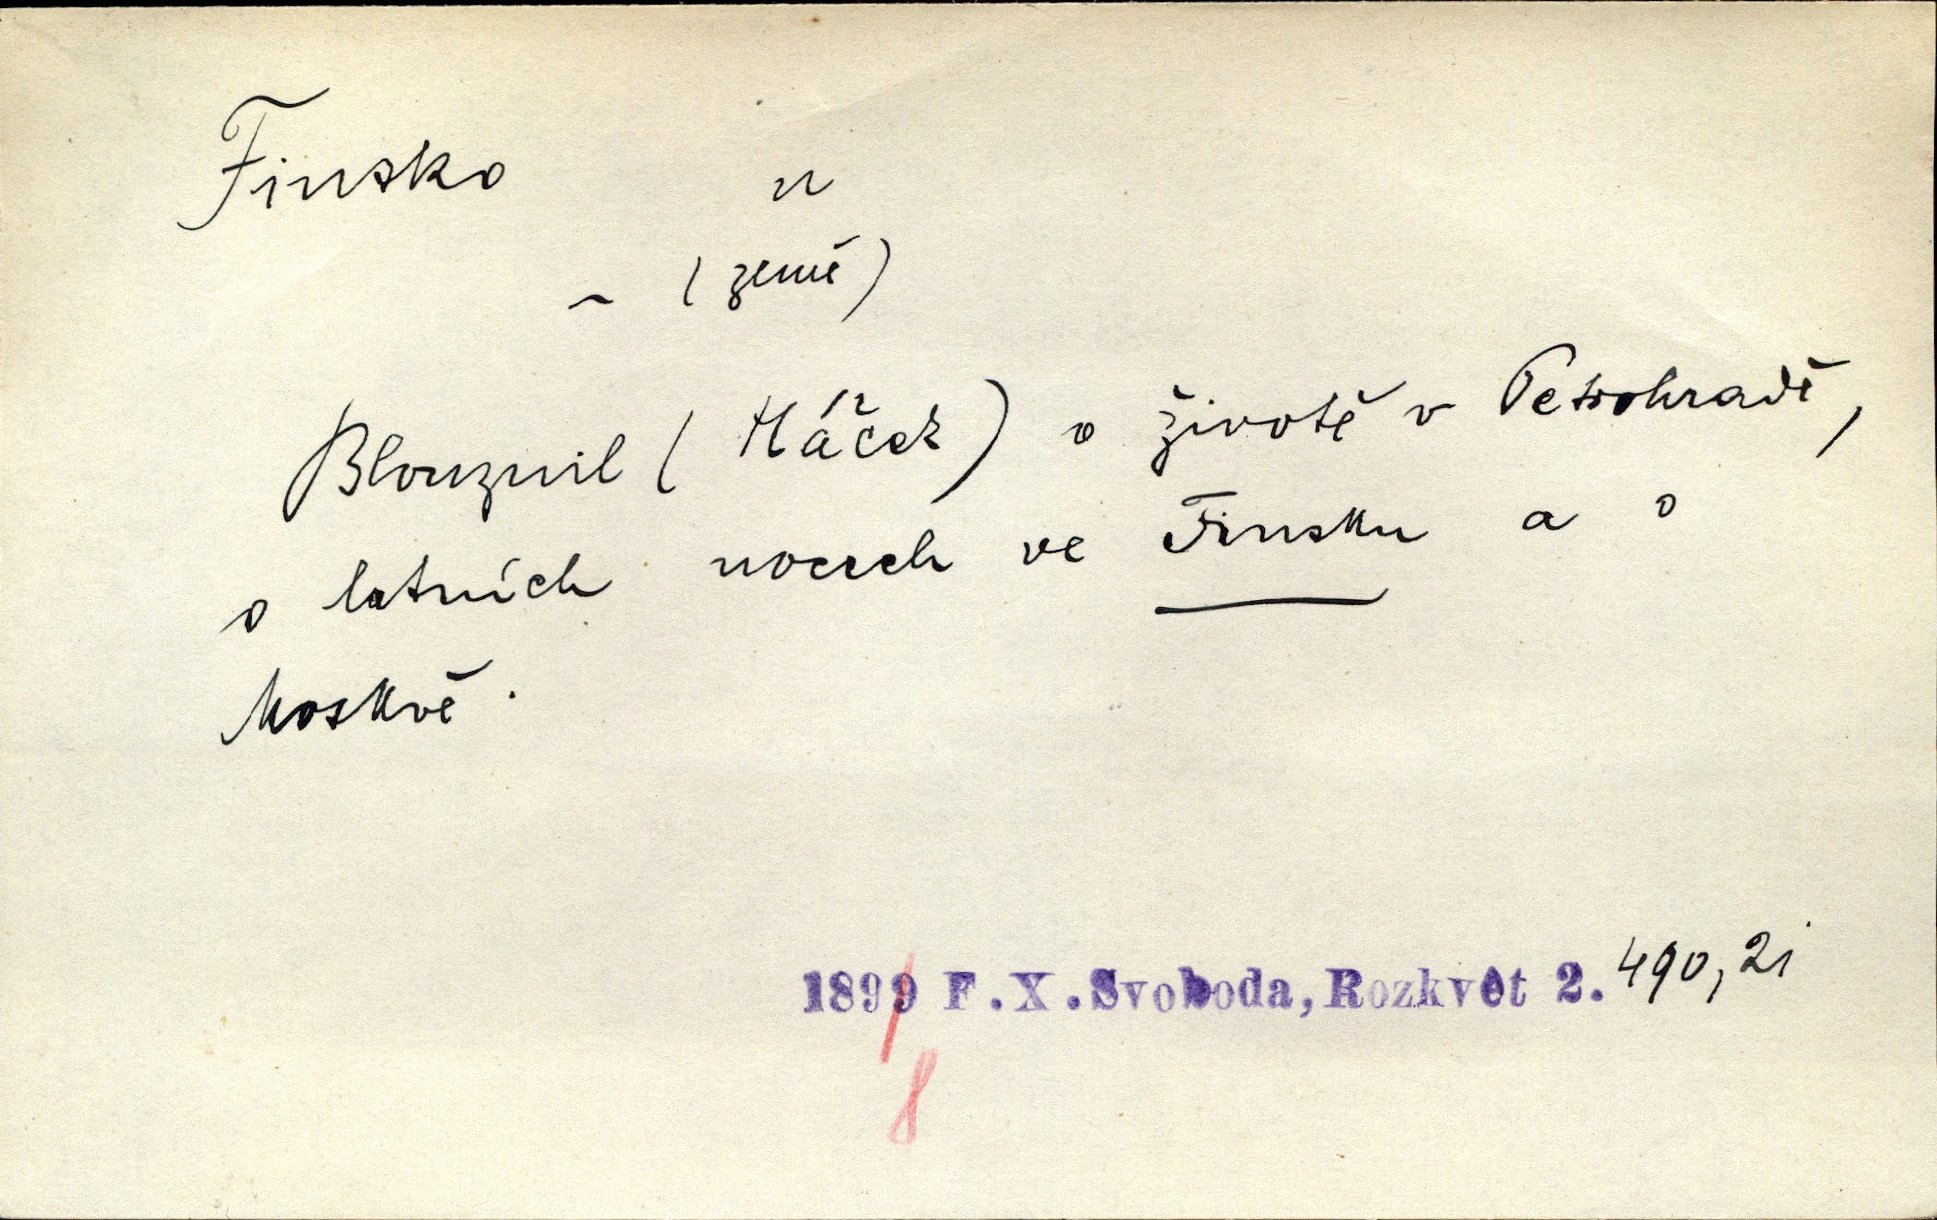 Finsko n
~ (země)
Blouznil (Háček) o životě v Petrohradě,
o letních nocech ve Finsku a o
Moskvě.
1899 F.X.Svoboda, Rozkvět 2. 490, 2i
8